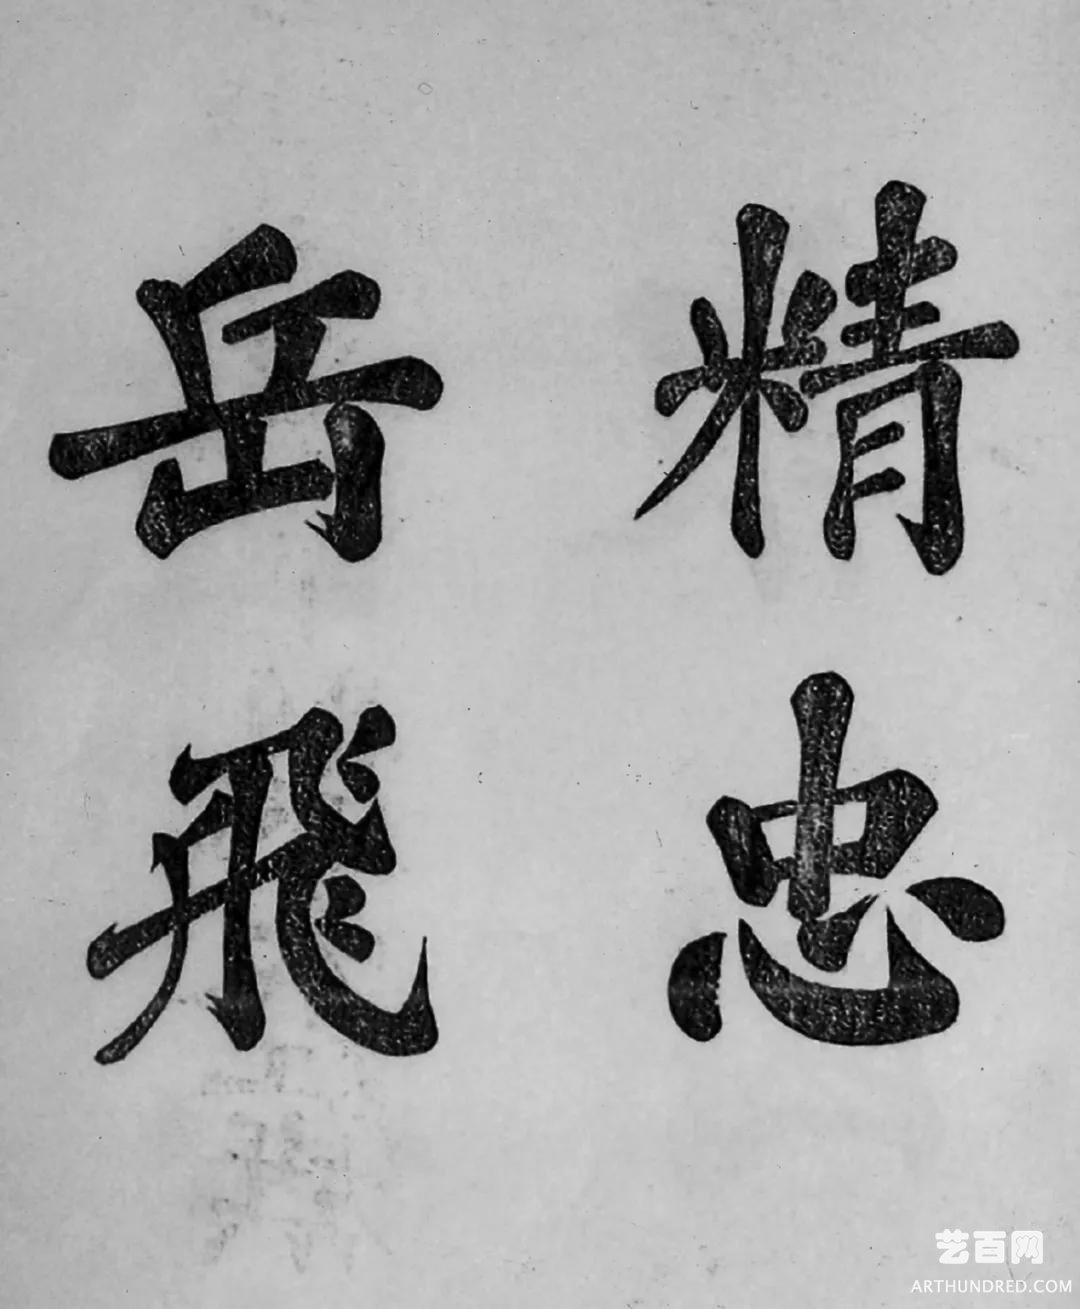 精忠
岳飛
艺百网
ARTHUNDRED.COM